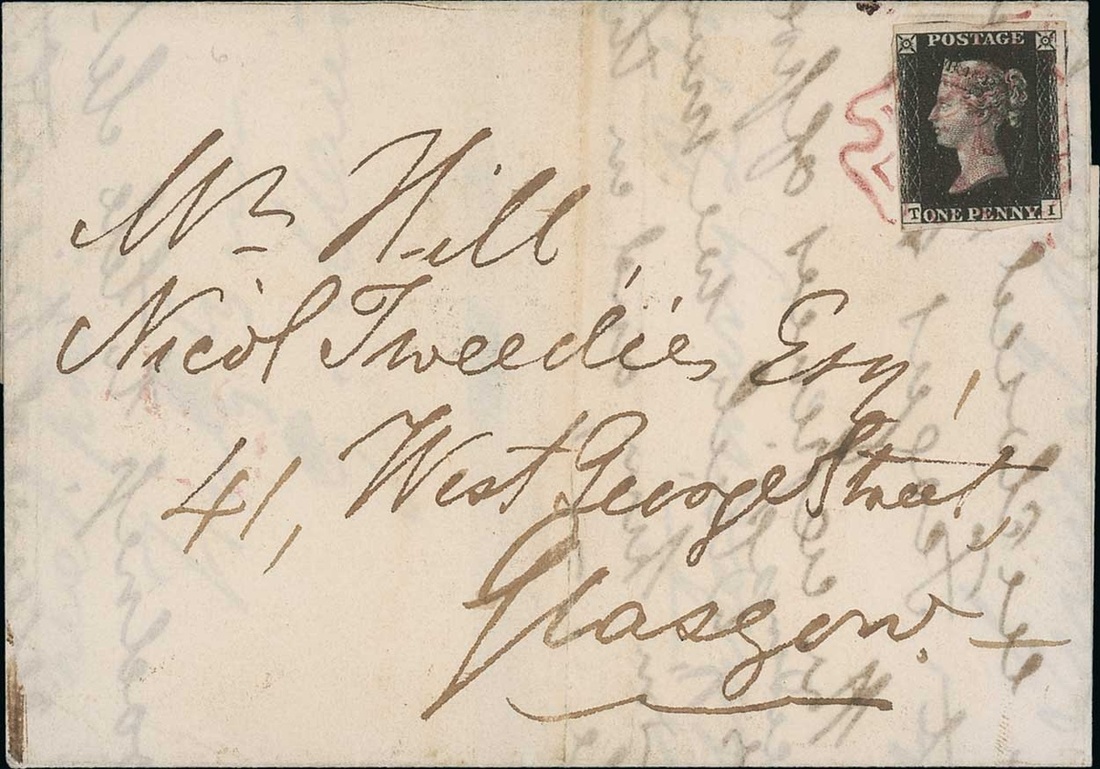 POSTAGE
T ONE PENNY I
Mr Hill,
Nicol Tweedies Esqr,
41, West George Street,
Glasgow.